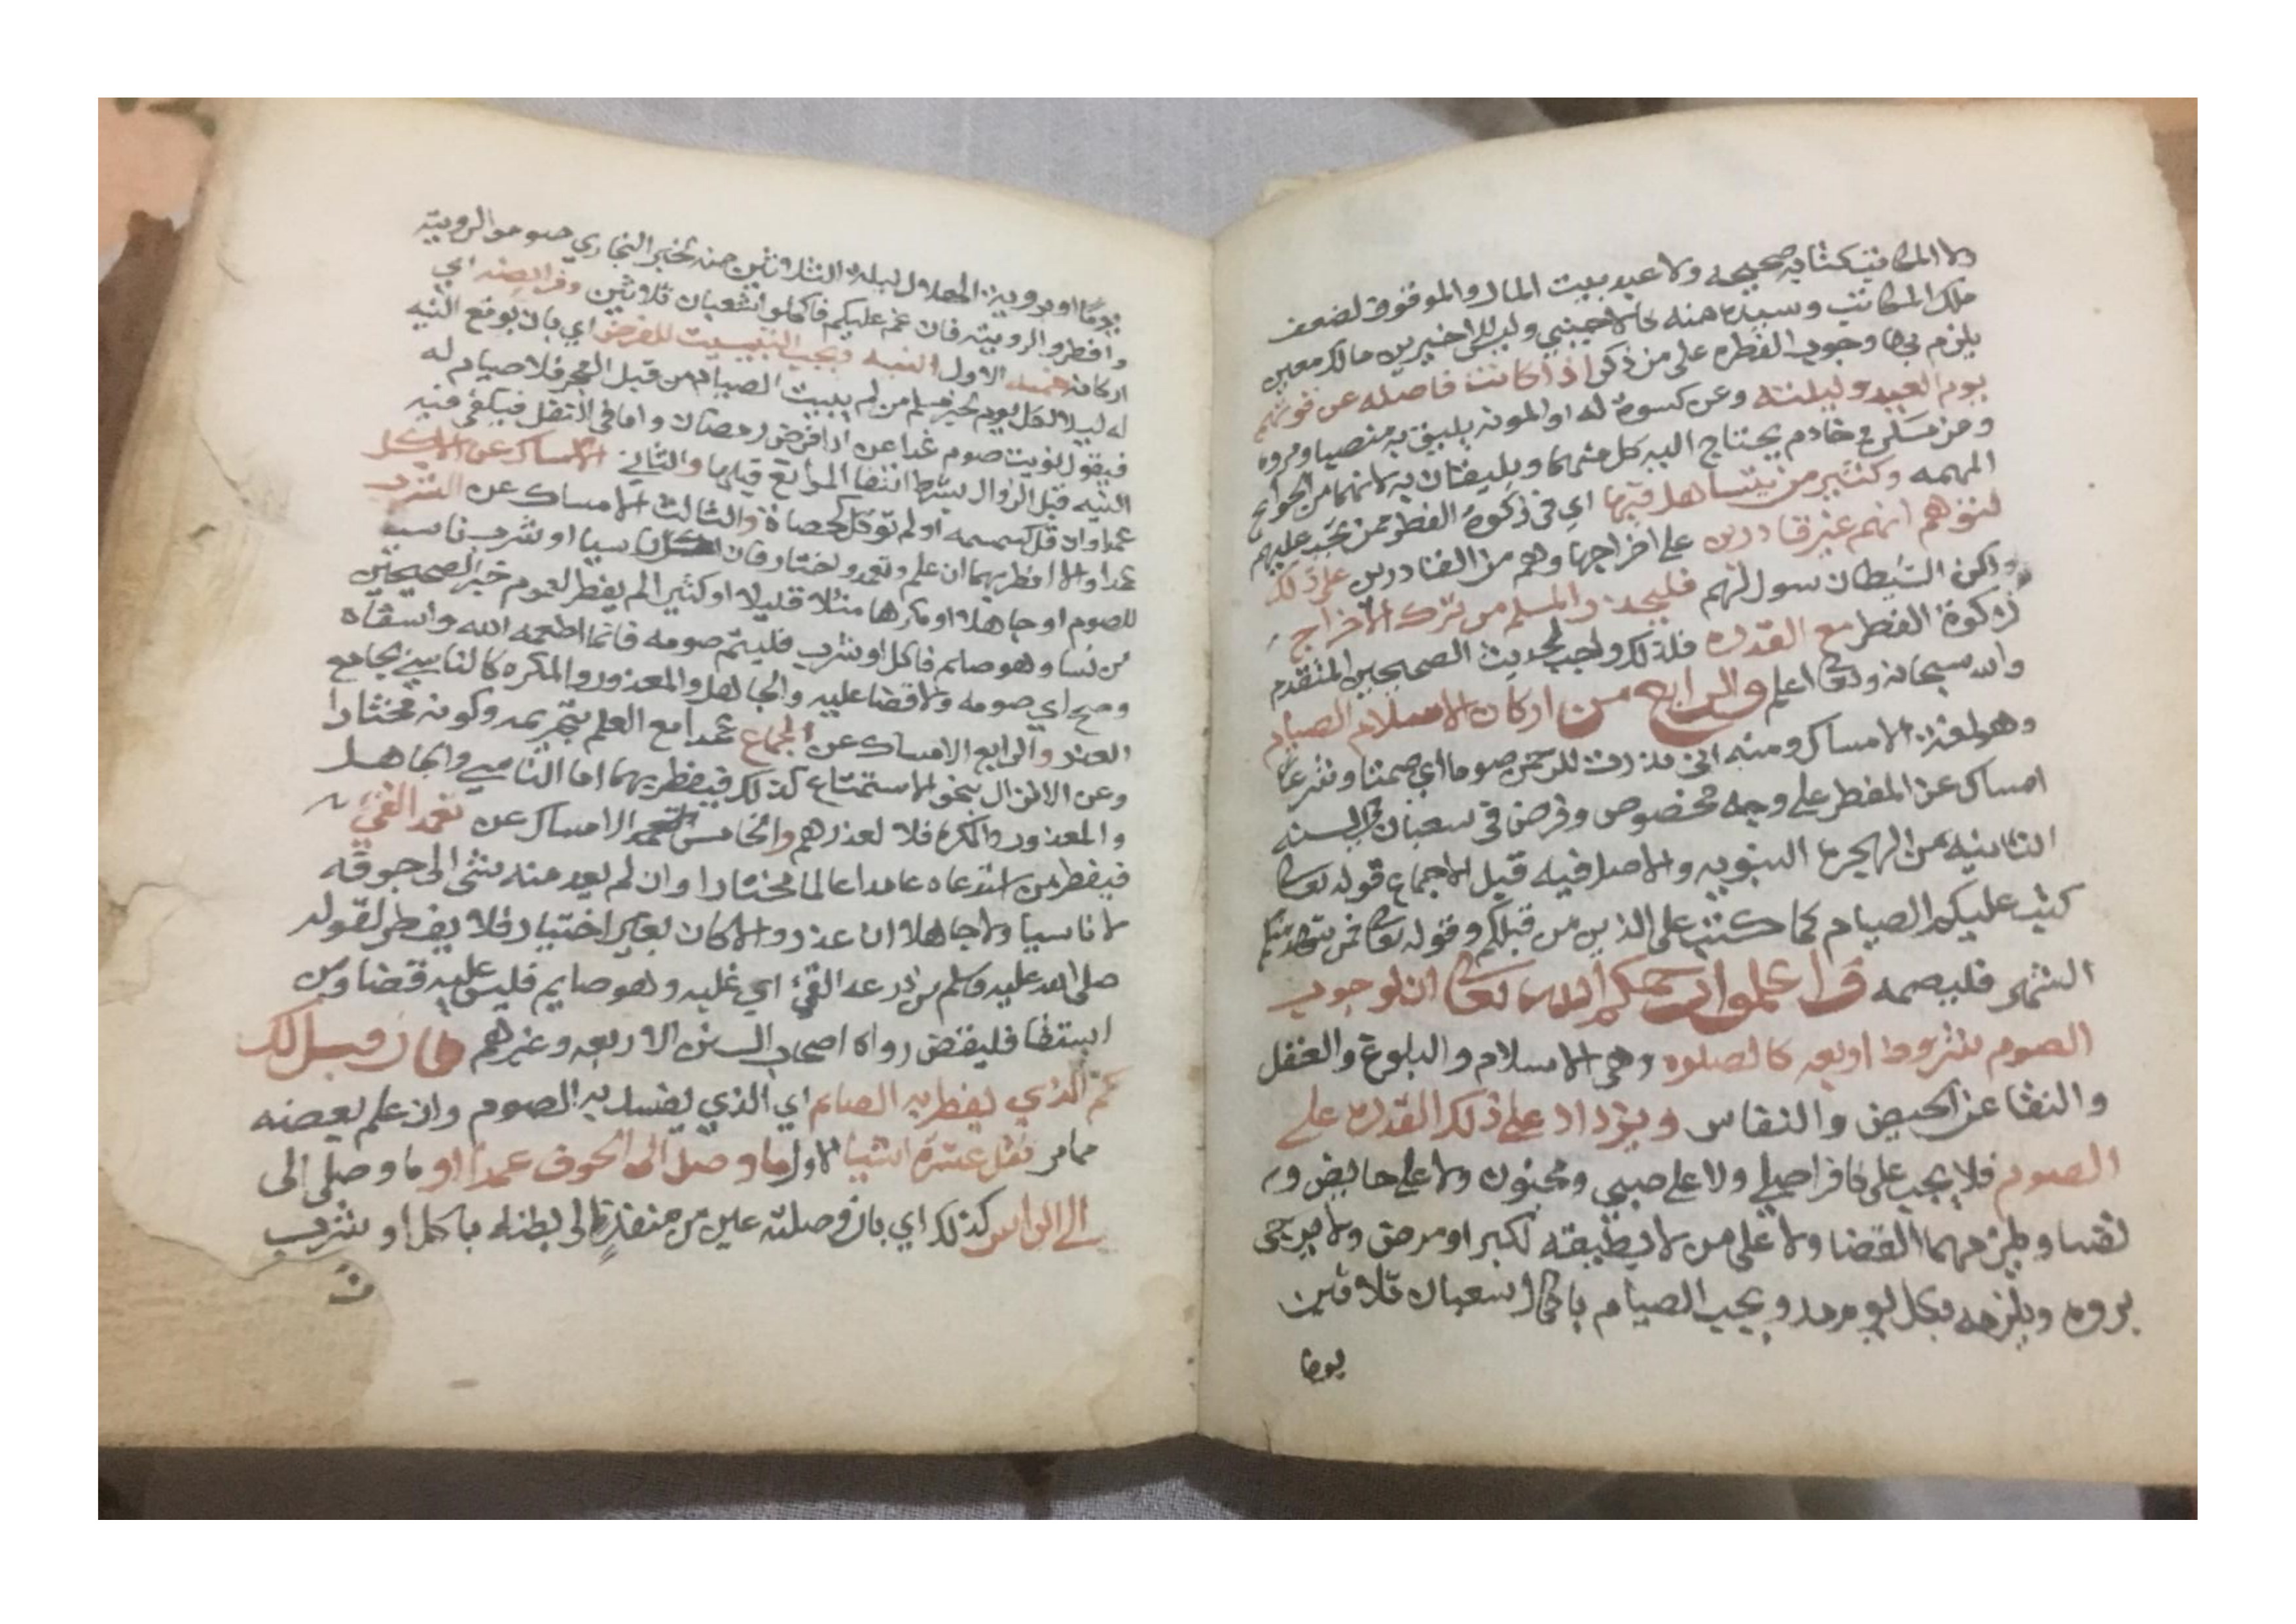 ولا المكاتب كتابة صحيحه ولا عبد بيت المال والموقوف لضعف
ملك المكاتب وسيده منه كالاجنبي وليس للاخيرين مالك معين
يلزم بها وجوب الفطره على من ذكر اذا كانت فاصله عن قوتهم
يوم العيد وليلته وعن كسوة له او المونه يليق به منصبا ومروه
ومن مسكن وخادم يحتاج اليه كل منهما ويليقان به لانهما من الحوائج
المهمه وكثير من يتساهل فيها اي في زكوة الفطر ممن تجب عليهم
لتوهم انهم غير قادرين على اخراجها وهم من القادرين على ذلك
ولكن الشيطان سول لهم فليحذر المسلم من ترك الاخراج
زكوة الفطر مع القدره فلذلك واجب لحديث الصحيحين المتقدم
والله سبحانه وتعالى اعلم والرابع من اركان الاسلام الصيام
وهو لغة الامساك ومنه اني نذرت للرحمن صوما اي صمتا وشرعا
امساك عن المفطر على وجه مخصوص وفرض في شعبان في السنه
الثانيه من الهجرة النبويه والاصل فيه قبل الاجماع قوله تعالى
كتب عليكم الصيام كما كتب على الذين من قبلكم وقوله تعالى فمن شهد منكم
الشهر فليصمه واعلموا رحمكم الله تعالى ان لوجوب
الصوم شروط اربعه كالصلوه وهي الاسلام والبلوغ والعقل
والنقا عن الحيض والنفاس ويزداد على ذلك القدره على
الصوم فلا يجب على كافر اصلي ولا على صبي ومجنون ولا على حايض و
نفسا ويلزمهما القضا ولا على من لا يطيقه لكبر او مرض ولا يرجى
بروه ويلزمه بكل يوم مد ويجب الصيام باكمال شعبان ثلاثين
يوما
يوما او بروية الهلال ليلة الثلاثين منه لخبر البخاري صوموا لرويته
وافطروا لرويته فان غم عليكم فاكملوا شعبان ثلاثين وفرايضه اي
اركانه خمسه الاول النيه ويجب التبييت للفرض اي بان يوقع النيه
له ليلا لكل يوم لخبر من لم يبيت الصيام من قبل الفجر فلا صيام له
فيقول نويت صوم غدا عن ادا فرض رمضان واما في النفل فيكفي فيه
النيه قبل الزوال بشرط انتفا الموانع قبلها والثاني الامساك عن الاكل
عمدا وان قل كسمسمه او لم توكل كحصاة والثالث الامساك عن الشرب
عمدا والا افطر بهما ان علم وتعمد واختار فان اكل ناسيا او شرب ناسيا
للصوم او جاهلا او مكرها مثلا قليلا او كثيرا لم يفطر لعموم خبر الصحيحين
من نسا وهو صايم فاكل او شرب فليتم صومه فانما اطعمه الله واسقاه
وصح اي صومه ولا قضا عليه والجاهل المعذور والمكره كالناسي بجامع
العذر والرابع الامساك عن الجماع عمدا مع العلم بتحريمه وكونه مختارا
وعن الانزال بنحو الاستمتاع كذلك فيفطر بهما اما الناسي والجاهل
والمعذور والمكره فلا لعذرهم والخامس الامساك عن تعمد القيء
فيفطر من استدعاه عامدا عالما مختارا وان لم يعد منه شي الى جوفه
لا ناسيا ولا جاهلا ان عذر والا كان بغير اختيار فلا يفطر لقوله
صلى الله عليه وسلم من ذرعه القيء اي غلبه وهو صايم فليس عليه قضا ومن
استقا فليقض رواه اصحاب السنن الاربعه وغيرهم فان قيل لك
كم الذي يفطر به الصايم اي الذي يفسد به الصوم وان علم بعضه
مما مر فقل عشرة اشيا الاول ما وصل الى الجوف عمدا او ما وصل الى
الى الراس كذلك اي بان وصلته عين من منفذ الى بطنه باكل او شرب